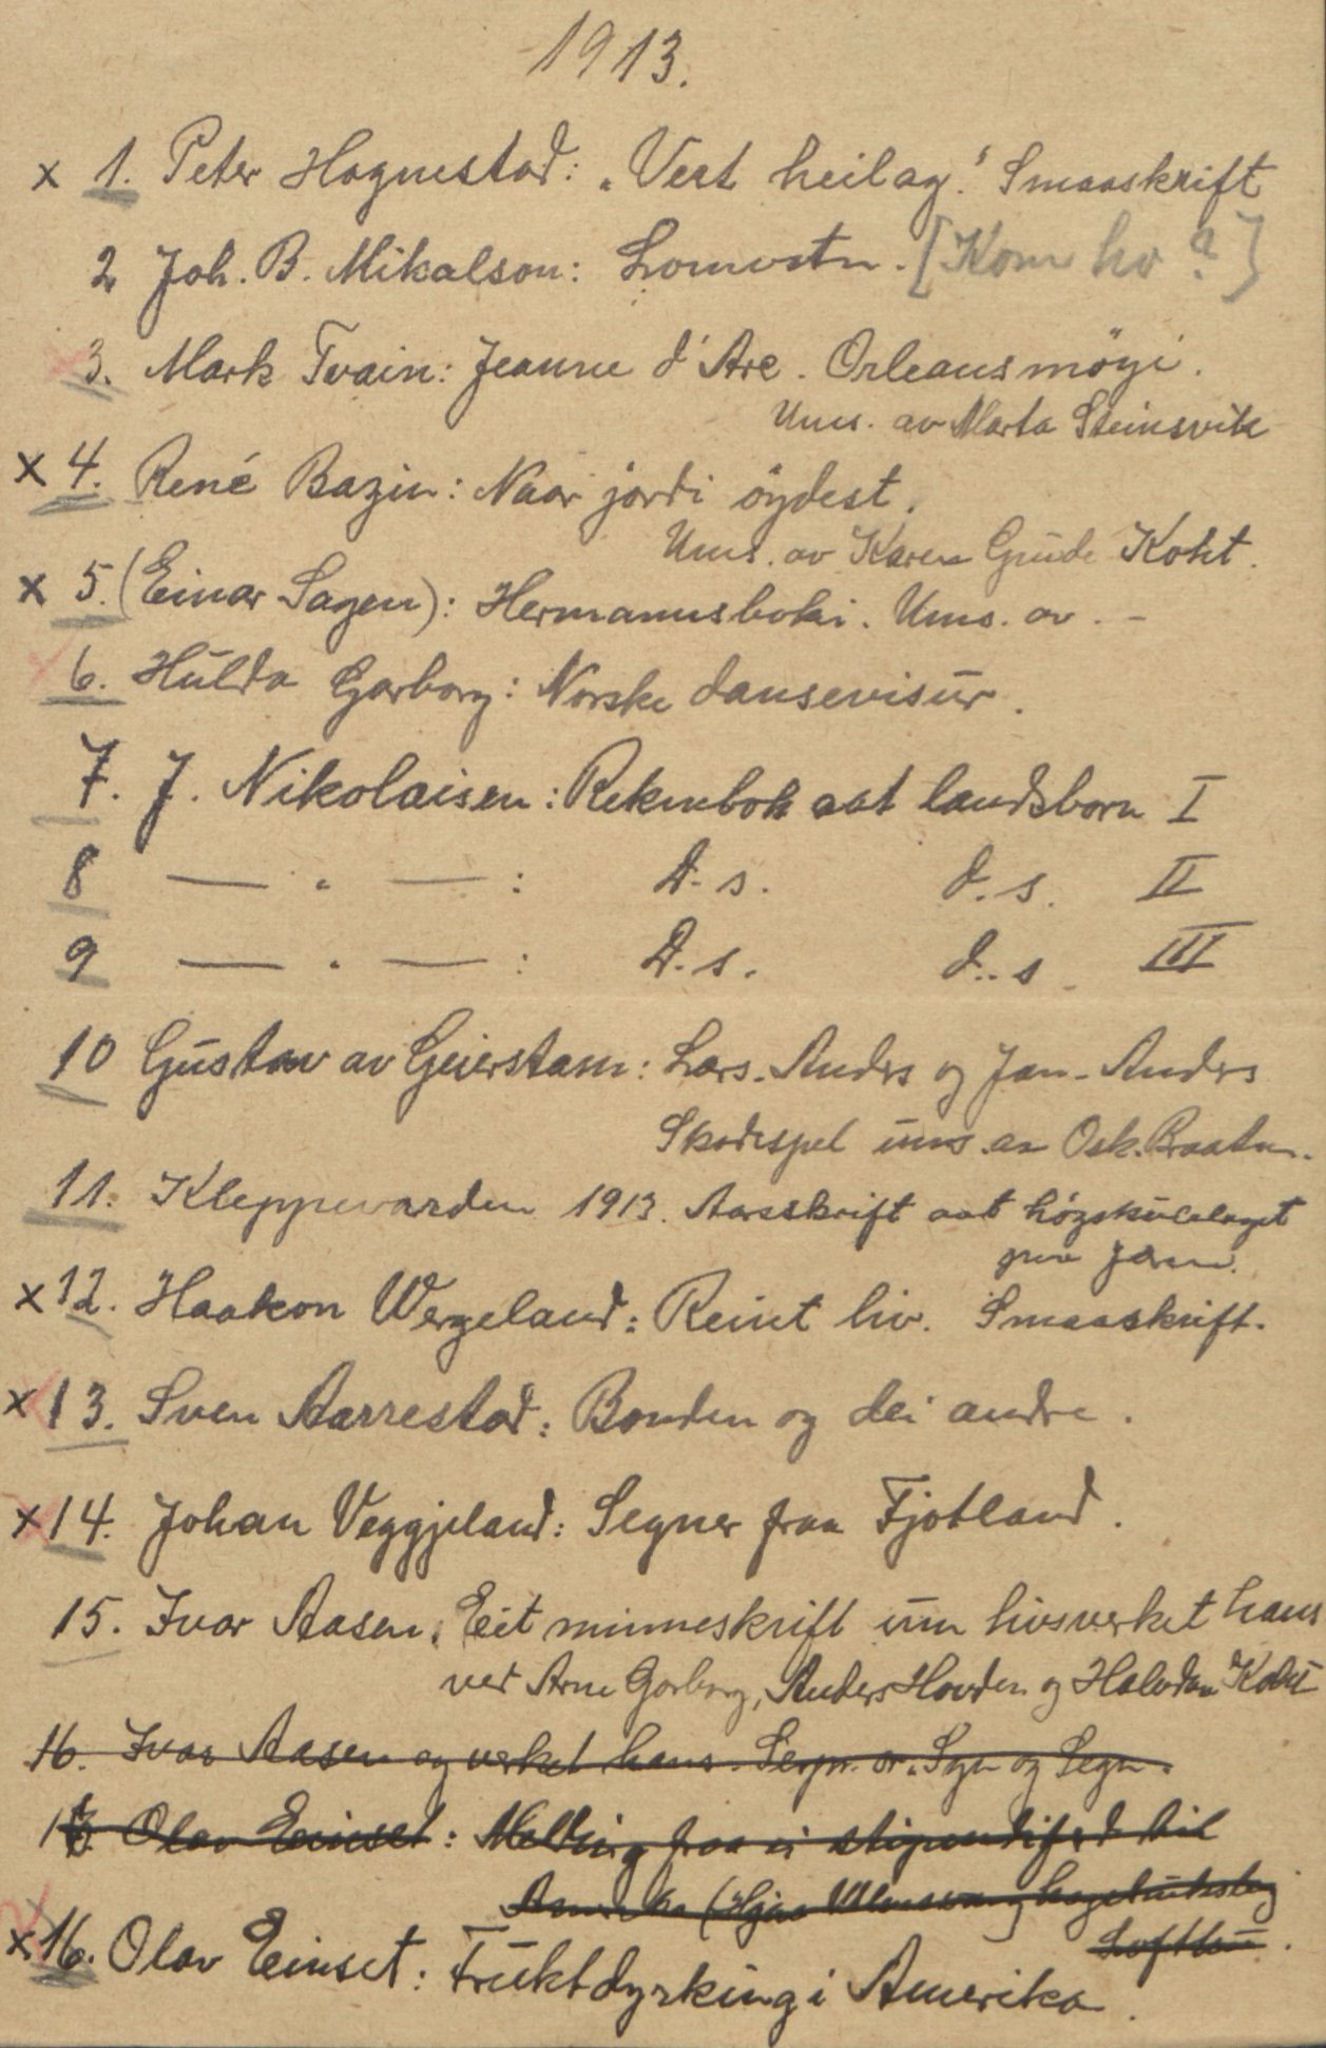 1913.
x 1. Peter Hognestad: „Vert heilag." Smaaskrift
2 Joh. B. Mikalson: Lomvatn. [Kom ho?]
3. Mark Tvain: Jeanne d'Arc. Orleansmöyi.
Ums. av Marta Steinsvik
x 4. René Bazin: Naar jordi öydest.
Ums. av Karen Grude Koht.
x 5. (Einar Sagen): Hermannsboki. Ums. av. -
6. Hulda Garborg: Norske dansevisur.
7. J. Nikolaisen: Reknebok aat landsborn I
8 — „ — : D. s. d. s. II
9 — „ — : D. s. d. s. III
10 Gustav av Geierstam: Lars-Anders og Jan-Anders
Skodespel ums. av Osk. Braaten.
11. Kleppevarden 1913. Aarsskrift aat högskulelaget
paa Jæren.
x 12. Haakon Wergeland: Reint liv. Smaaskrift.
x 13. Sven Aarrestad: Bonden og dei andre.
x 14. Johan Veggjeland: Segner fraa Fjotland.
15. Ivar Aasen. Eit minneskrift um livsverket hans
ved Arne Garborg, Anders Hovden og Halvdan Koht
16. Ivar Aasen og verket hans. Serpr. or „Syn og Segn.
Olav Einset: Melding fraa ei stipendiferd til
Amerika
x 16. Olav Einset: Fruktdyrking i Amerika.